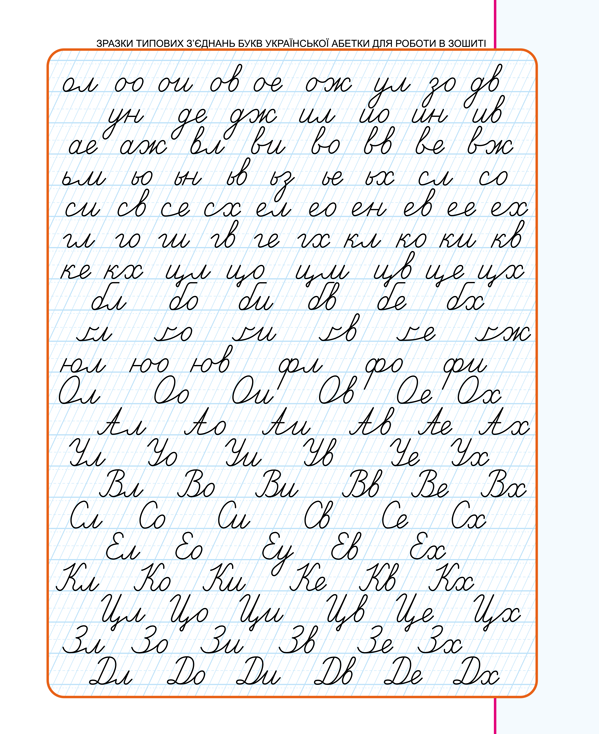 ЗРАЗКИ ТИПОВИХ З'ЄДНАНЬ БУКВ УКРАЇНСЬКОЇ АБЕТКИ ДЛЯ РОБОТИ В ЗОШИТІ
ол оо ои ов ое ож ул зо дв
ун де дж ил ио ин ив
ае аж вл ви во вв ве вж
ьм ьо ьн ьв ьз ье ьх сл со
си св се сх ел ео ен ев ее ех
гл го ги гв ге гх кл ко ки кв
ке кх цл цо цм цв це цх
бл бо би бв бе бх
ґл ґо ґи ґв ґе ґж
юл юо юв фл фо фи
Ол Оо Ои Ов Ое Ох
Ал Ао Аи Ав Ае Ах
Ул Уо Уи Ув Уе Ух
Вл Во Ви Вв Ве Вх
Сл Со Си Св Се Сх
Ел Ео Еу Ев Ех
Кл Ко Ки Ке Кв Кх
Цл Цо Ци Цв Це Цх
Зл Зо Зи Зв Зе Зх
Дл До Ди Дв Де Дх